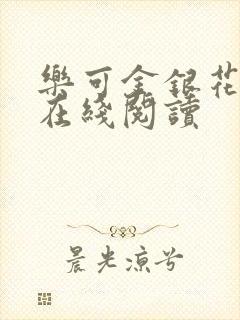 樂可金銀花
在綫閱讀
晨光凉兮